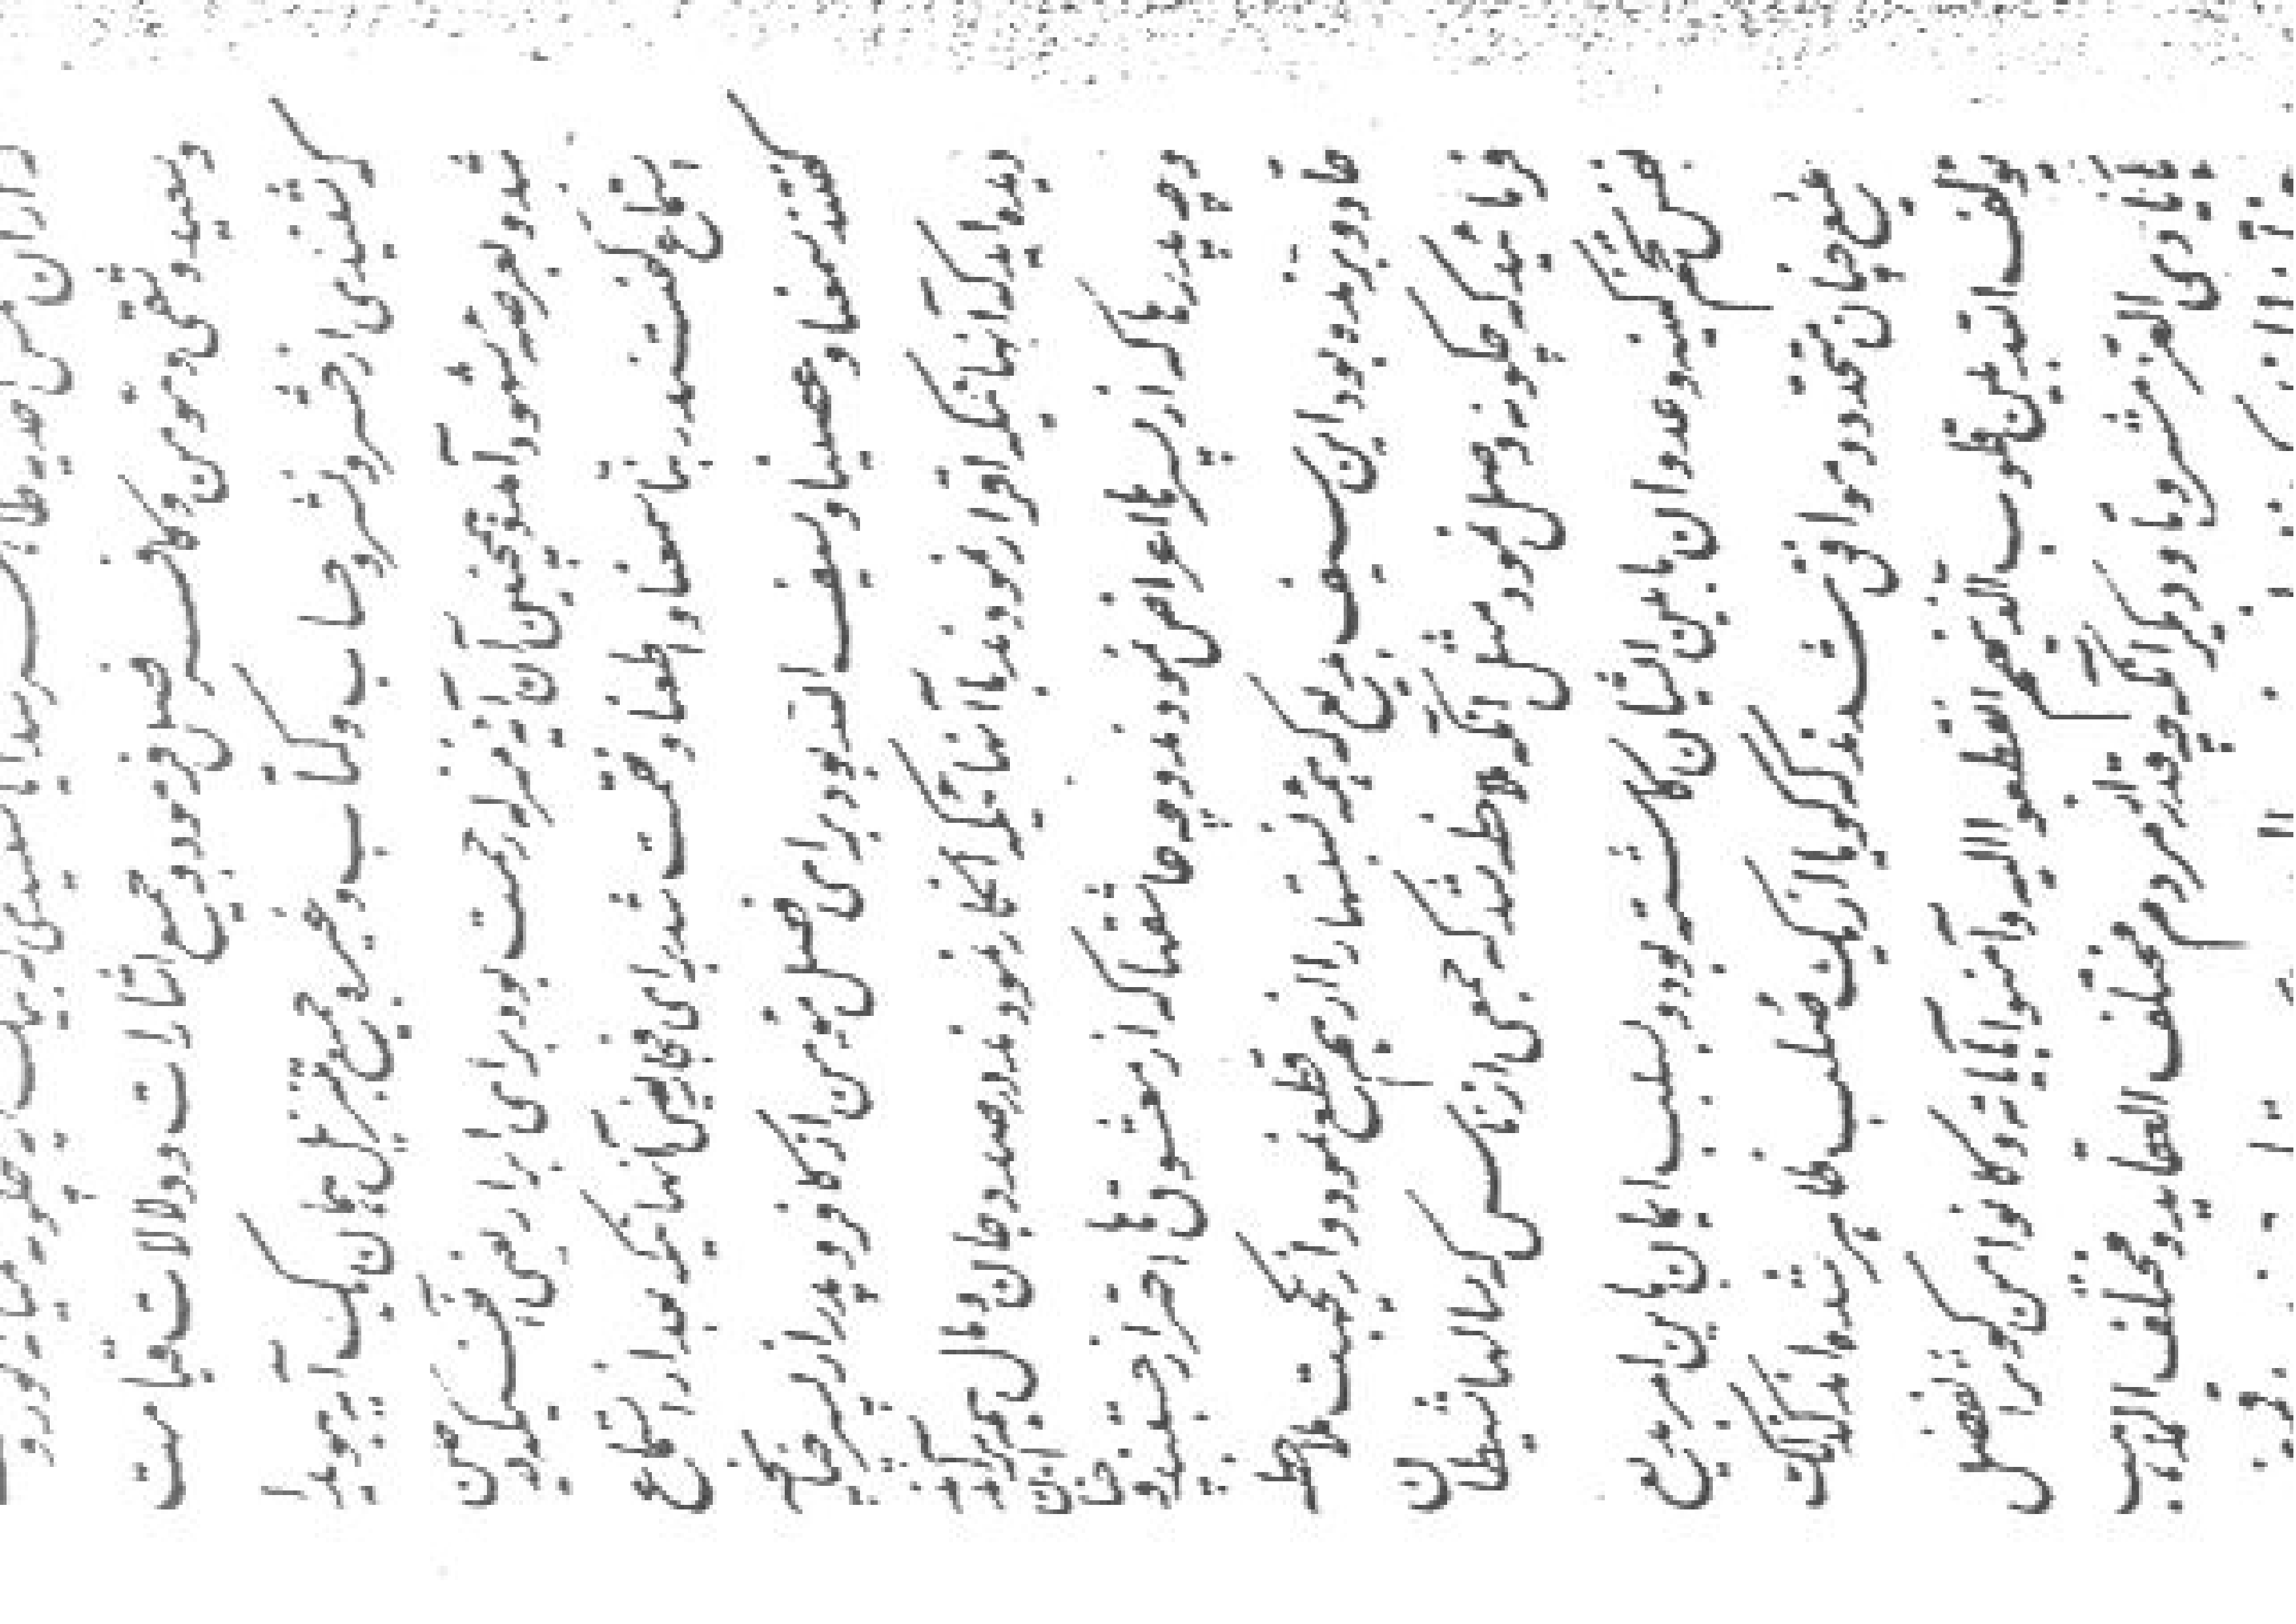 وسعید و تقی و مومن و کافر فصل فرمود و جمیع اشارات و دلالات قیامت
که شنیدی از حشر و نشر و حساب و کتاب و غیره جمیع بتنزیل همان یک آیه هویدا
شد و بعرصه شهود آمد و همچنین آن آیه منزله رحمت بود برای ابرار یعنی انفسیکه در حین
استماع گفتند ربنا سمعنا و اطعنا و نقمت شد برای فجار یعنی آنهائیکه بعد از استماع
گفتند سمعنا و عصینا و سیف الله بود برای فصل مؤمن از کافر و پدر از پسر چنانچه
دیده‌اید که آنهائیکه اقرار نمودند با آنهائیکه انکار نمودند در صدد جان و مال هم برآمدند
و چه پدرها که از پسرها اعراض نمودند و چه عاشقها که از معشوقها احتراز جستند و چنان
حاد و برنده بود این سیف بدیع که همه نسبتها را از هم قطع نمود و از یک جهت ملاحظه
فرمائید که چگونه وصل نمود مثل آنکه ملاحظه شد که جمعی از ناس که سالها شیطان
نفس تخم کینه و عدوان مابین ایشان کاشته بود و بسبب ایمان باین امر بدیع
منیع چنان متحد و موافق شدند که گویا از یک صلب ظاهر شده‌اند کذلک
یؤلف الله بین قلوب الذینهم انقطعوا الیه و آمنوا بآیاته و کانوا من کوثر الفضل
بایادی العز شروبا و دیگر آنکه چقدر از مردم مختلف العقاید و مختلف المذاهب